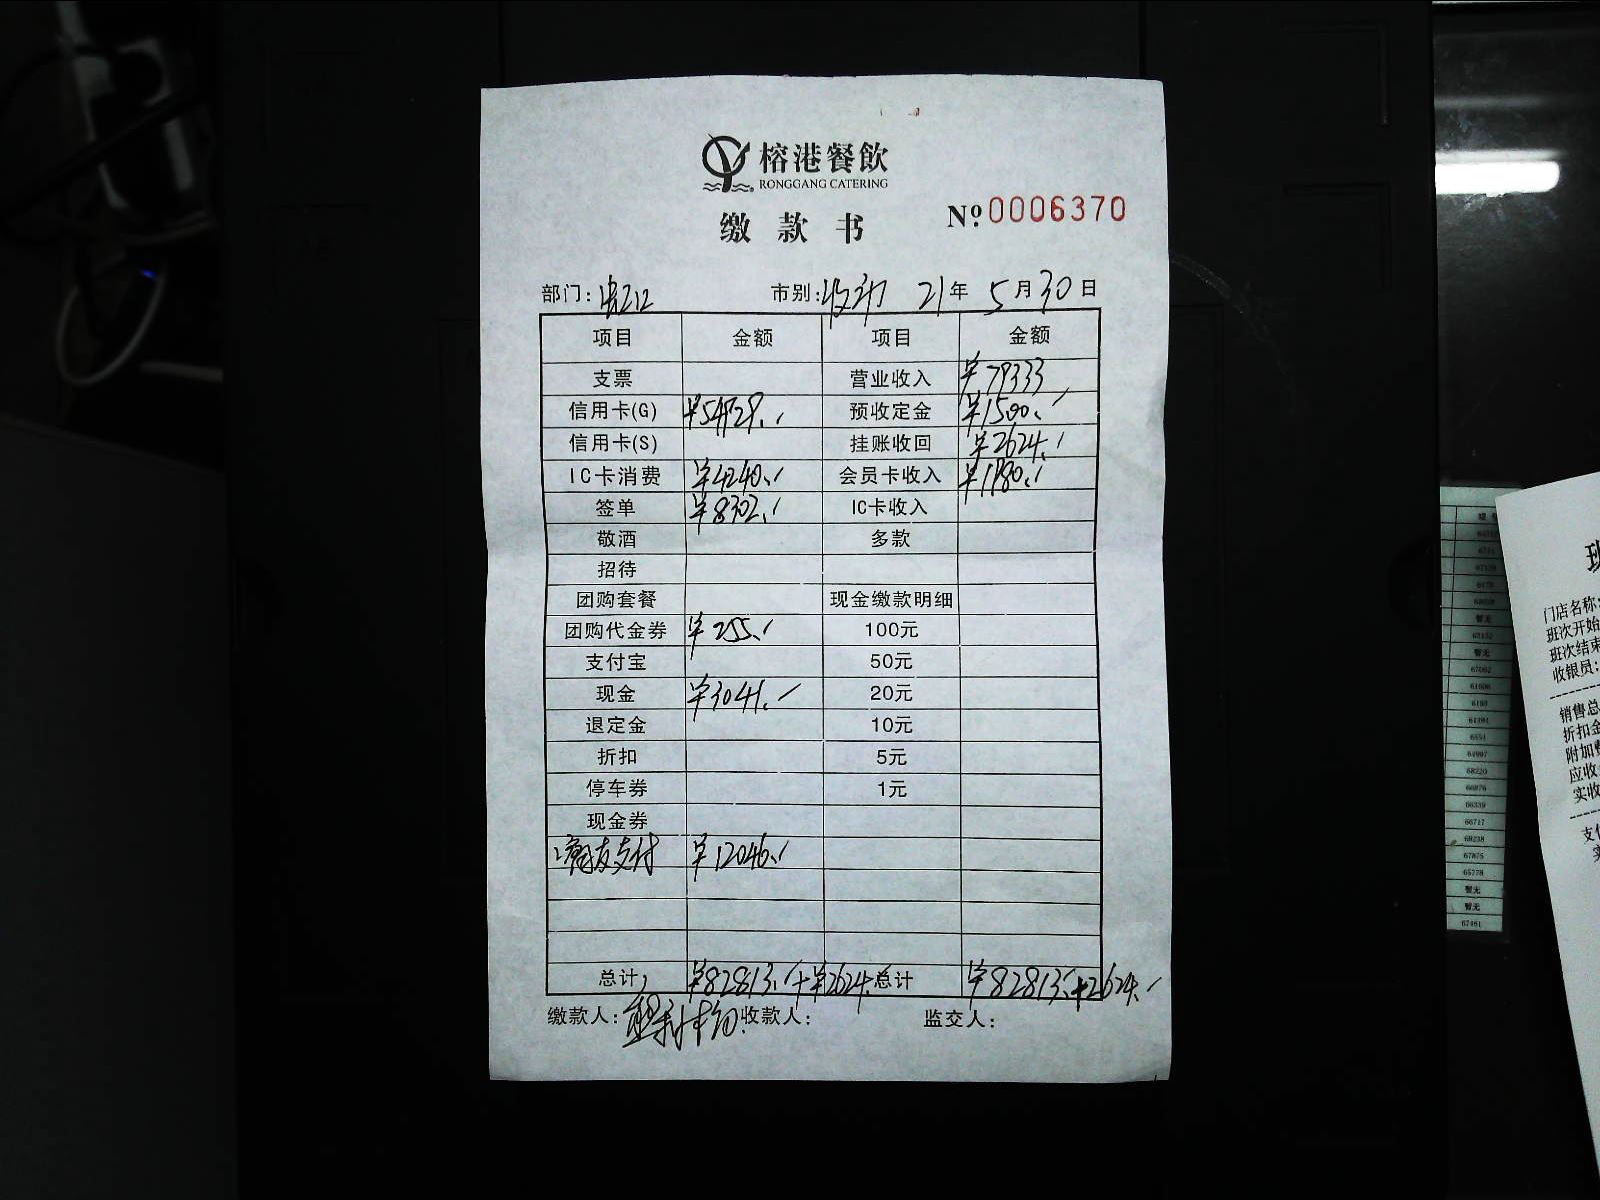 榕港餐飲
RONGGANG CATERING
缴款书
Nº 0006370
部门: 市别: 21年 5月30日
项目 金额 项目 金额
支票 营业收入 ¥79333
信用卡(G) ¥54929. 预收定金 ¥1500.
信用卡(S) 挂账收回 ¥2624.
IC卡消费 ¥4240. 会员卡收入 ¥1980.
签单 ¥8302. IC卡收入
敬酒 多款
招待
团购套餐 现金缴款明细
团购代金券 ¥255. 100元
支付宝 50元
现金 ¥3041. 20元
退定金 10元
折扣 5元
停车券 1元
现金券
支付 ¥12046.
总计 ¥82813.+¥2624. 总计 ¥82813.+2624.
缴款人: 收款人: 监交人:
门店名称:
班次开始
班次结束
收银员:
销售总
折扣金
附加
应收
实收